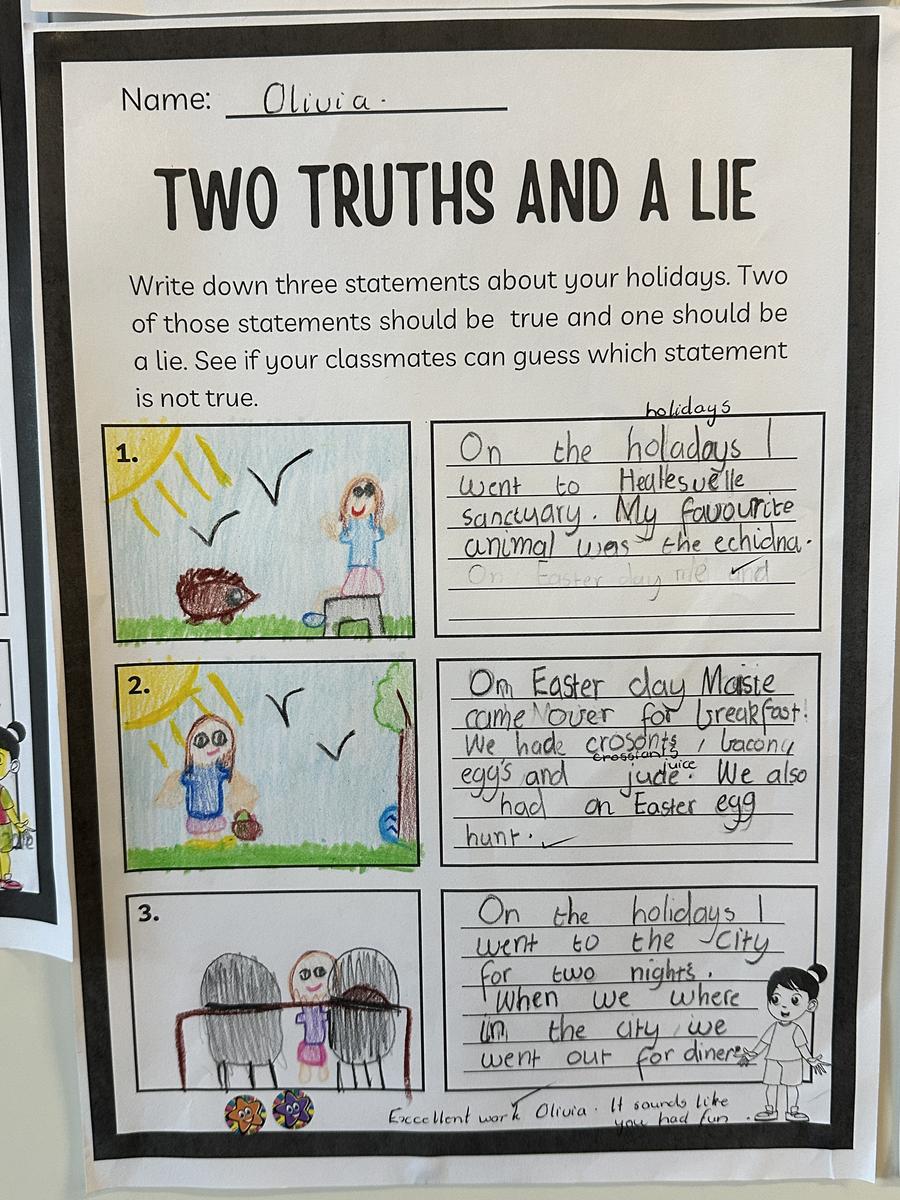 Name: Olivia.
TWO TRUTHS AND A LIE
Write down three statements about your holidays. Two
of those statements should be true and one should be
a lie. See if your classmates can guess which statement
is not true.
1.
holidays
On the holadays I
went to Healesvelle
sanctuary. My favourite
animal was the echidna.
On Easter day me and
2.
On Easter day Maisie
came over for breakfast.
We hade crosonts, bacon,
crossiants
egg's and jude. We also
juice
had on Easter egg
hunt.
3.
On the holidays I
went to the city
for two nights.
When we where
in the city we
went out for diner
Excellent work Olivia. It sounds like
you had fun.